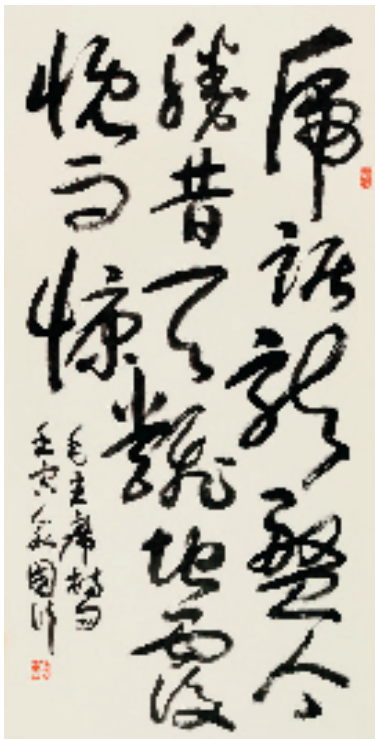 虎踞龍盤今
勝昔天飜地覆
慨而慷
毛主席詩句
壬寅